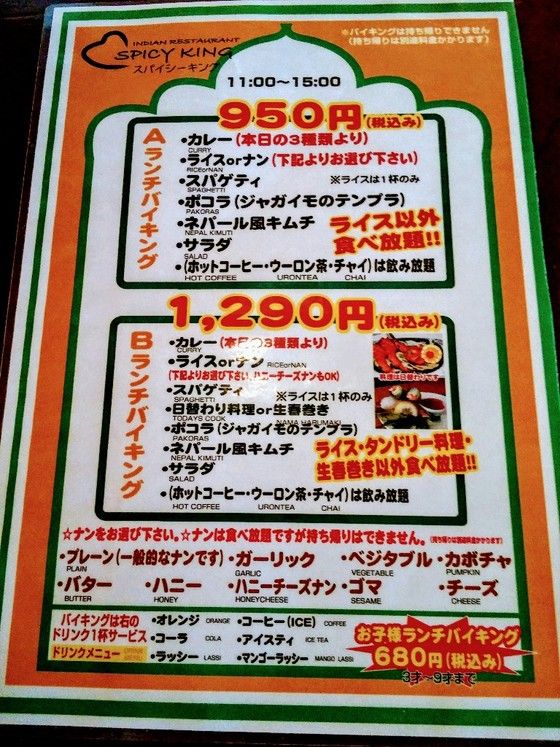 INDIAN RESTAURANT
SPICY KING
スパイシーキング
※バイキングは持ち帰りできません
(持ち帰りは別途料金かかります)
11:00〜15:00
950円(税込み)
Aランチバイキング
・カレー(本日の3種類より)
CURRY
・ライスorナン(下記よりお選び下さい)
RICEorNAN
・スパゲティ ※ライスは1杯のみ
SPAGHETTI
・ポコラ(ジャガイモのテンプラ)
PAKORAS
・ネパール風キムチ
NEPAL KIMUTI
・サラダ
SALAD
ライス以外
食べ放題!!
・(ホットコーヒー・ウーロン茶・チャイ)は飲み放題
HOT COFFEE URONTEA CHAI
1,290円(税込み)
Bランチバイキング
・カレー(本日の3種類より)
CURRY
・ライスorナン RICEorNAN
(下記よりお選び下さい、ハニーチーズナンもOK)
・スパゲティ ※ライスは1杯のみ
SPAGHETTI
・日替わり料理or生春巻き
TODAYS COOK NAMA HARUMAKI
・ポコラ(ジャガイモのテンプラ)
PAKORAS
・ネパール風キムチ
NEPAL KIMUTI
・サラダ
SALAD
料理は日替わりです
ライス・タンドリー料理・
生春巻き以外食べ放題!!
・(ホットコーヒー・ウーロン茶・チャイ)は飲み放題
HOT COFFEE URONTEA CHAI
☆ナンをお選び下さい。☆ナンは食べ放題ですが持ち帰りはできません。(持ち帰りは別途料金かかります)
・プレーン(一般的なナンです) ・ガーリック ・ベジタブル ・カボチャ
PLAIN GARLIC VEGETABLE PUMPKIN
・バター ・ハニー ・ハニーチーズナン ・ゴマ ・チーズ
BUTTER HONEY HONEYCHEESE SESAME CHEESE
バイキングは右の
ドリンク1杯サービス
ドリンクメニュー
・オレンジ ORANGE ・コーヒー(ICE) COFFEE
・コーラ COLA ・アイスティ ICE TEA
・ラッシー LASSI ・マンゴーラッシー MANGO LASSI
お子様ランチバイキング
680円(税込み)
3才〜9才まで